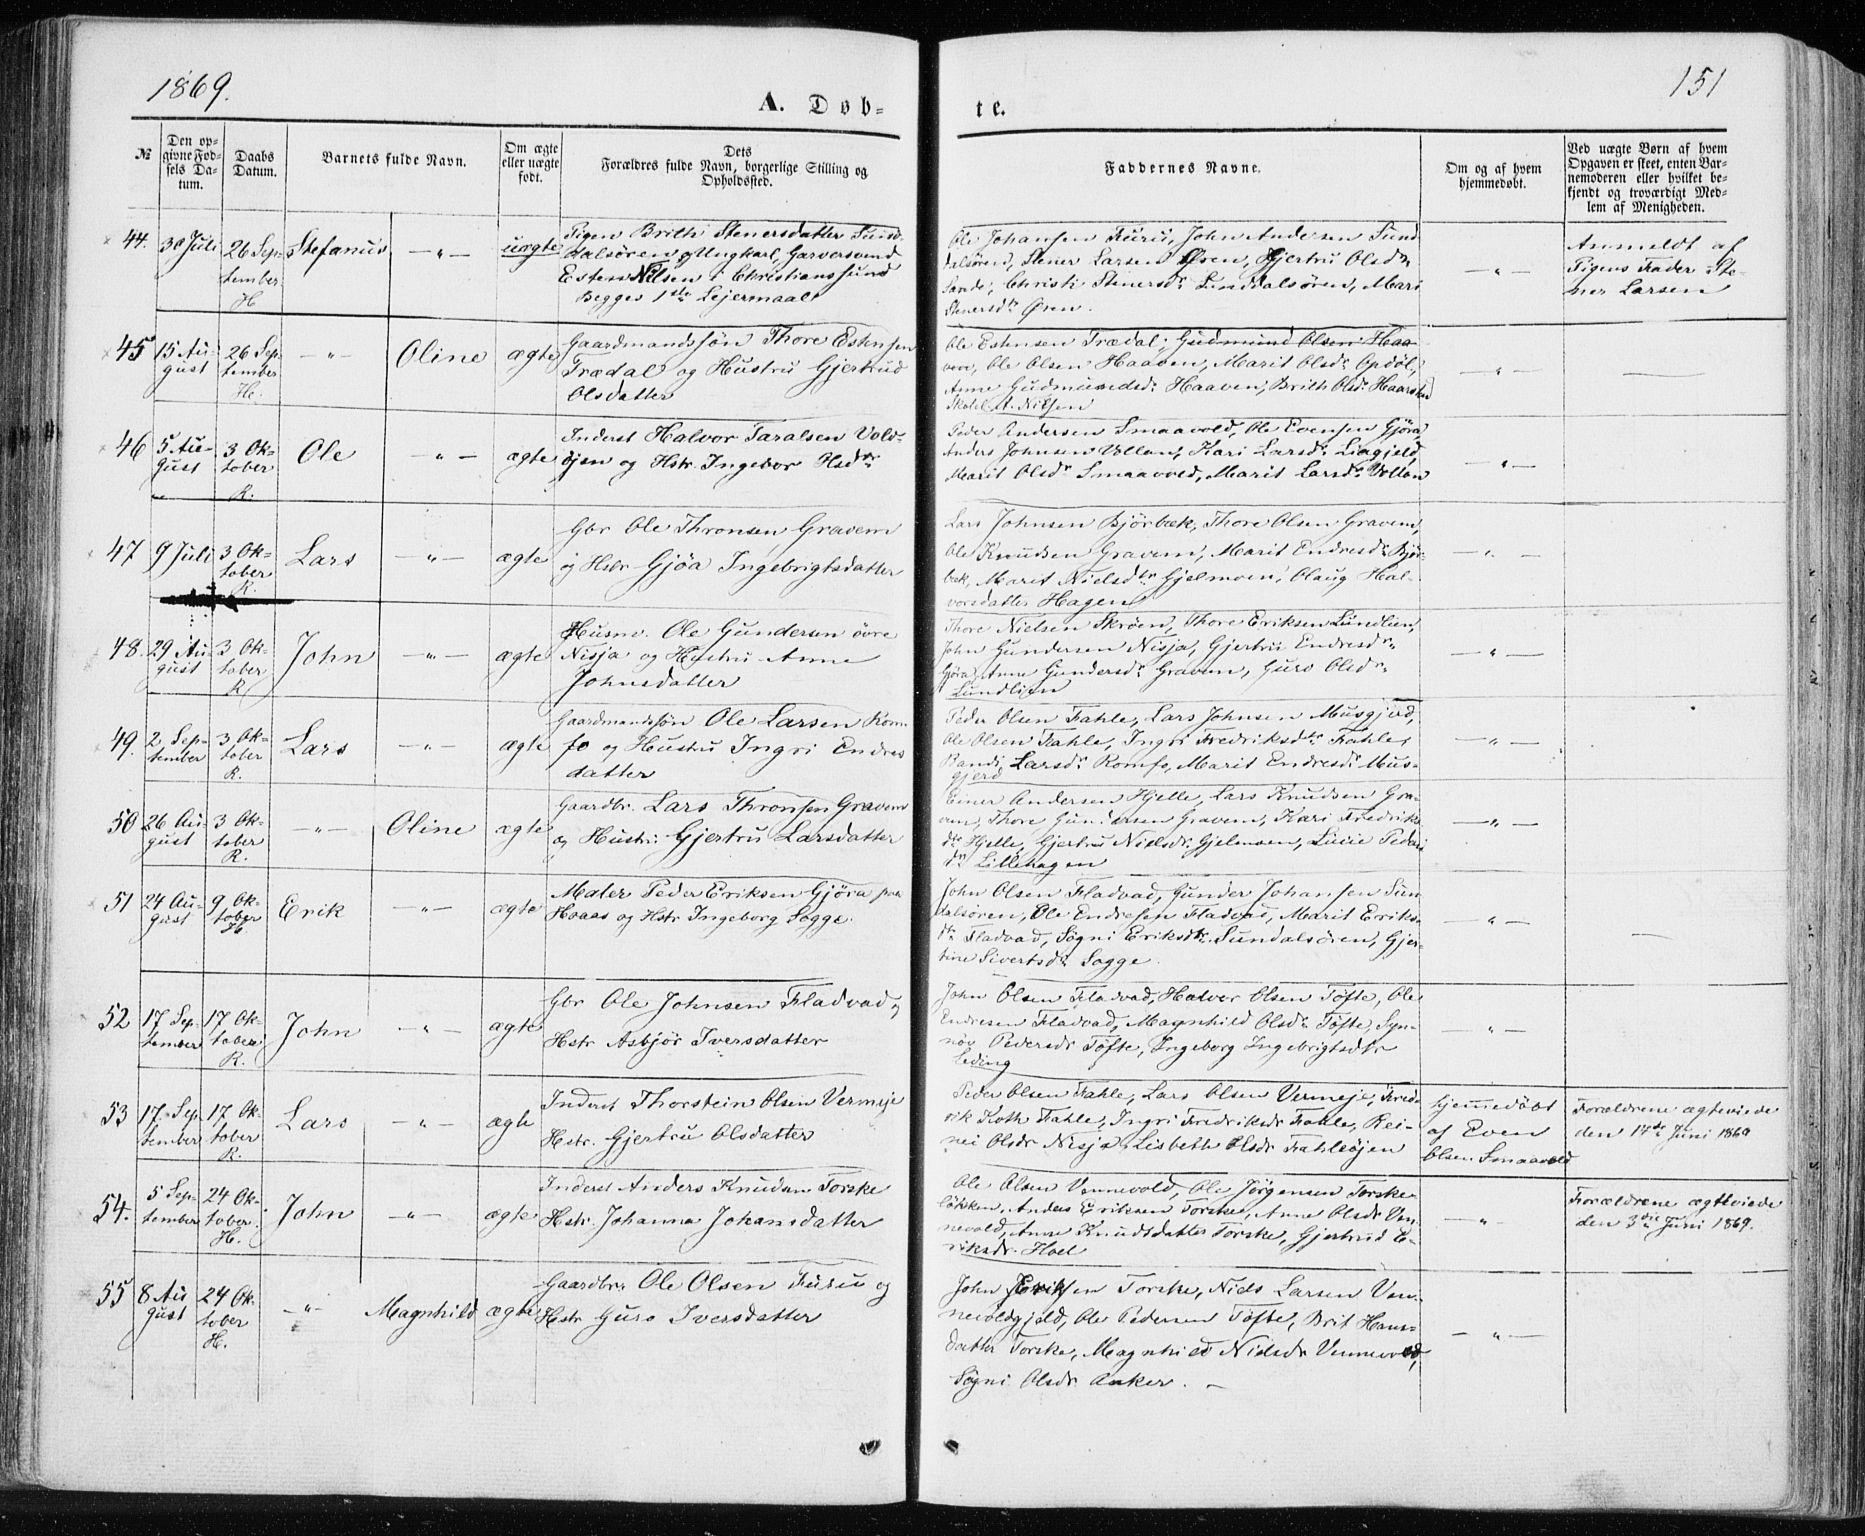 1869.
151
A. Døb-
te.
№
Den op-
givne Fød-
sels Da-
tum.
Daabs
Datum.
Barnets fulde Navn.
Om ægte
eller uægte
født.
Dets
Forældres fulde Navn, borgerlige Stilling og
Opholdssted.
Faddernes Navne.
Om og af hvem
hjemmedøbt.
Ved uægte Børn af hvem
Opgaven er skeet, enten Bar-
nemoderen eller hvilket be-
kjendt og troværdigt Med-
lem af Menigheden.
44. 30 Juli 26 Sep-
tember
H
Stefanus - " - uægte
Pigen Brith Stenersdatter Sund-
dalsören og Ungkarl, Garversvend
Esten Nilsen i Christianssund
Begges 1ste Lejermaal
Ole Johansen Furu, John Andersen Sund
dalsören, Stener Larsen Ören, Gjertru Olsdr
Sande, Christi Stenersdr Sunddalsören, Mari
Stenersdr Øren.
- " -
Anmeldt af
Pigens Fader Ste-
ner Larsen
45 15 Au-
gust
26 Sep-
tember
H.
- " - Oline ægte
Gaardmandssøn Thore Estensen
Trædal og Hustru Gjertrud
Olsdatter
Ole Estensen Trædal, Gudmund Olsen Haa
ven, Ole Olsen Haaven, Marit Olsdr Opdöl,
Anne Gudmundsdr Haaven, Brith Olsdr Haarstad
Skolel. A. Nilsen
- " -
46 5 Au-
gust
3 Ok-
tober
R.
Ole - " - ægte
Inderst Halvor Taralsen Vold-
öjen og Hstr. Ingebor Olsdtr
Peder Andersen Smaavold, Ole Evensen Gjöra,
Anders Johnsen Vollan, Kari Larsdr Liagjeld,
Marit Olsdr Smaavold, Marit Larsdr Vollan
- " -
47 9 Juli 3 Ok-
tober
R.
Lars - " - ægte
Gbr Ole Thronsen Gravem
og Hstr Gjöa Ingebrigtsdatter
Lars Johnsen Bjørbæk, Thore Olsen Gravem,
Ole Knudsen Gravem, Marit Endresdr Bjør-
bæk, Marit Nielsdtr Gjelmoen, Olaug Hal-
vorsdatter Hagen
- " -
48. 29 Au-
gust
3 Ok-
tober
R
John - " - ægte
Husm. Ole Gundersen övre
Nisja og Hustru Anne
Johnsdatter
Thore Nielsen Skröen, Thore Eriksen Lundlien,
John Gundersen Nisja, Gjertru Endresdr
Gjöra, Anne Gundersdr Gravem, Guro Olsdr
Lundlien
- " -
49. 2 Sep-
tember
3 Ok-
tober
R.
Lars - " - ægte
Gaardmandssøn Ole Larsen Rom-
fo og Hustru Ingri Endres
datter
Peder Olsen Fahle, Lars Johnsen Musgjerd,
Ole Olsen Fahle, Ingri Fredriksdtr Fahle,
Randi Larsdr Romfo, Marit Endresdr Mus-
gjerd
- " -
50 26 Au-
gust
3 Ok-
tober
R.
- " - Oline ægte
Gaardbr. Lars Thronsen Gravem
og Hustru Gjertru Larsdatter
Einer Andersen Hjelle, Lars Knudsen Gra-
vem, Thore Gundersen Gravem, Kari Fredriks
dtr Hjelle, Gjertru Nielsdr Gjelmoen, Lucie Peders
dr Lillehagen
- " -
51 24 Au-
gust
9 Ok-
tober
H
Erik - " - ægte
Maler Peder Eriksen Gjöra paa
Hoaas og Hstr Ingeborg Sogge.
John Olsen Fladvad, Gunder Johansen Sun
dalsören, Ole Endresen Fladvad, Marit Eriks-
dr Fladvad, Sögni Eriksdtr Sundalsören, Gjer-
tine Sivertsdr Sogge.
- " -
52 17 Sep-
tember
17 Ok-
tober
R.
John - " - ægte
Gbr Ole Johnsen Fladvad og
Hstr Asbjör Iversdatter
John Olsen Fladvad, Halvor Olsen Töfte, Ole
Endresen Fladvad, Magnhild Olsdr Töfte, Syn-
növ Pedersdr Töfte, Ingeborg Ingebrigtsdtr
Leding
- " -
53 17 Sep
tember
17 Ok-
tober
R.
Lars - " - ægte
Inderst Thorstein Olsen Vermeje
Hstr. Gjertru Olsdatter
Peder Olsen Fahle, Lars Olsen Vermeje, Fred-
rik Koth Fahle, Ingri Fredriksdr Fahle, Rei-
nei Olsdr Nisja, Lisbeth Olsdr Fahleöjen
hjemmedöbt
af Even
Olsen Smaavold
Forældrene ægteviede
den 17de Juni 1869
54. 5 Sep-
tember
24 Ok-
tober
H.
John - " - ægte
Inderst Anders Knudsen Torske
Hstr. Johanna Johansdatter
Ole Olsen Vennevold, Ole Jørgensen Torske-
lökken, Anders Eriksen Torske, Anne Olsdr Ven-
nevold, Anne Knudsdatter Torske, Gjertrud E-
riksdr Hoel
- " -
Forældrene ægteviede
den 3die Juni 1869.
55 8 Au
gust
24 Ok-
tober
H.
- " - Magnhild ægte
Gaardbr. Ole Olsen Furu og
Hstr Guro Iversdatter
John Eriksen Torske, Niels Larsen Ven-
nevoldgjeld, Ole Pedersen Töfte, Brit Hans-
datter Torske, Magnhild Nielsdr Vennevold,
Sögni Olsdr Aaker. -
- " -